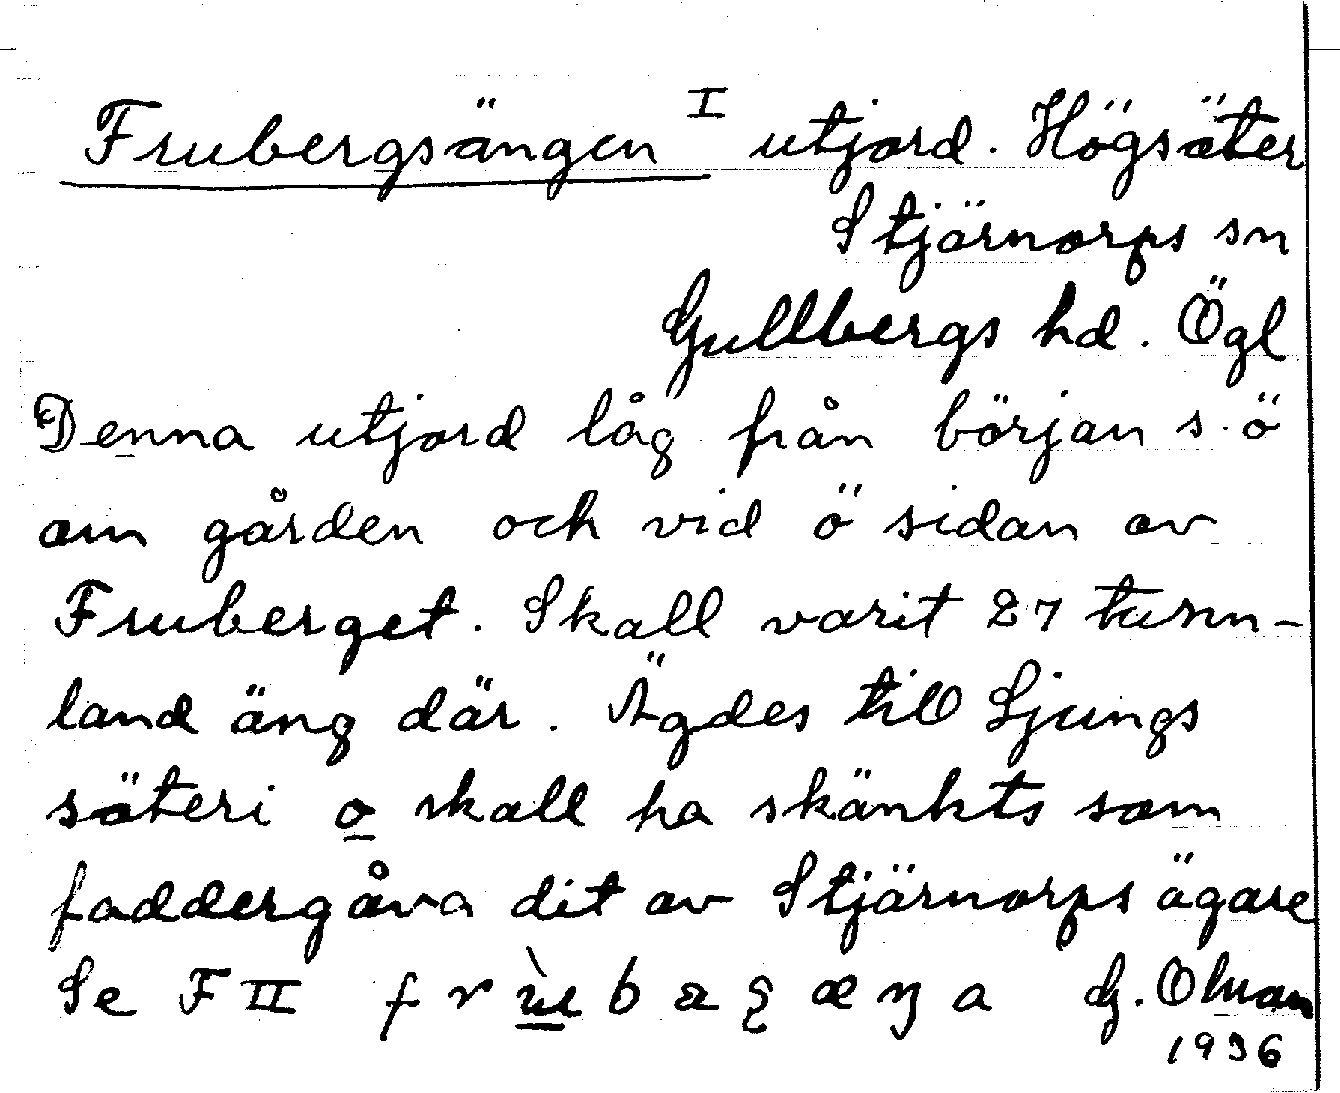 Frubergsängen I utjord. Högsäter
Stjärnorps sn
Gullbergs hd. Ögl
Denna utjord låg från början s.ö
om gården och vid ö sidan av
Fruberget. Skall varit 27 tunn-
land äng där. Ägdes till Ljungs
säteri o skall ha skänkts som
faddergåva dit av Stjärnorps ägare
Se F II
1936